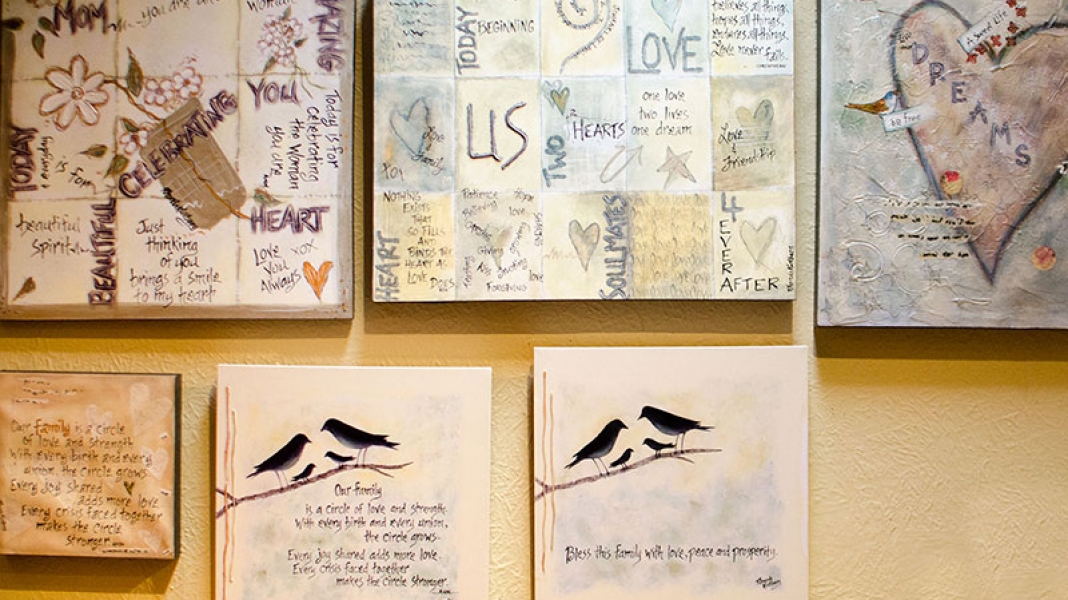 MOM
you are
AMAZING
YOU
Today is for
celebrating
the Woman
you are
CELEBRATING
TODAY
& everyday
is for
beautiful
spirit
BEAUTIFUL
Just
thinking
of you
brings a smile
to my heart
HEART
Love xox
You
Always
TODAY
BEGINNING
LOVE
believes all things,
hopes all things,
endures all things.
Love never
fails.
US
TWO
HEARTS
one love
two lives
one dream
Love
&
Friendship
Joy
Love
family
HEART
NOTHING
EXISTS
THAT
SO FILLS
AND
BINDS THE
HEART AS
LOVE DOES
Patience
Hope
love
Giving
Kiss
love
FORGIVING
SOULMATES
4
EVER
AFTER
DREAMS
be free
Our family is a circle
of love and strength
With every birth and every
union, the circle grows
Every joy shared
adds more love
Every crisis faced together
makes the circle
stronger
Our family
is a circle of love and strength.
With every birth and every union,
the circle grows.
Every joy shared adds more love.
Every crisis faced together
makes the circle stronger.
Bless this family with love, peace and prosperity.